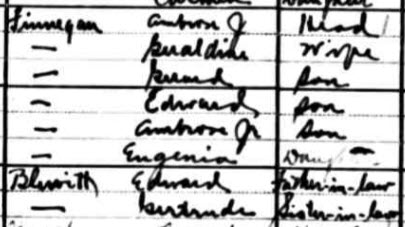 Finnegan Ambrose J Head
— Geraldine Wife
— Gerard Son
— Edward Son
— Ambrose Jr Son
— Eugenia Daugh
Blewitt Edward Father-in-law
— Gertrude Sister-in-law